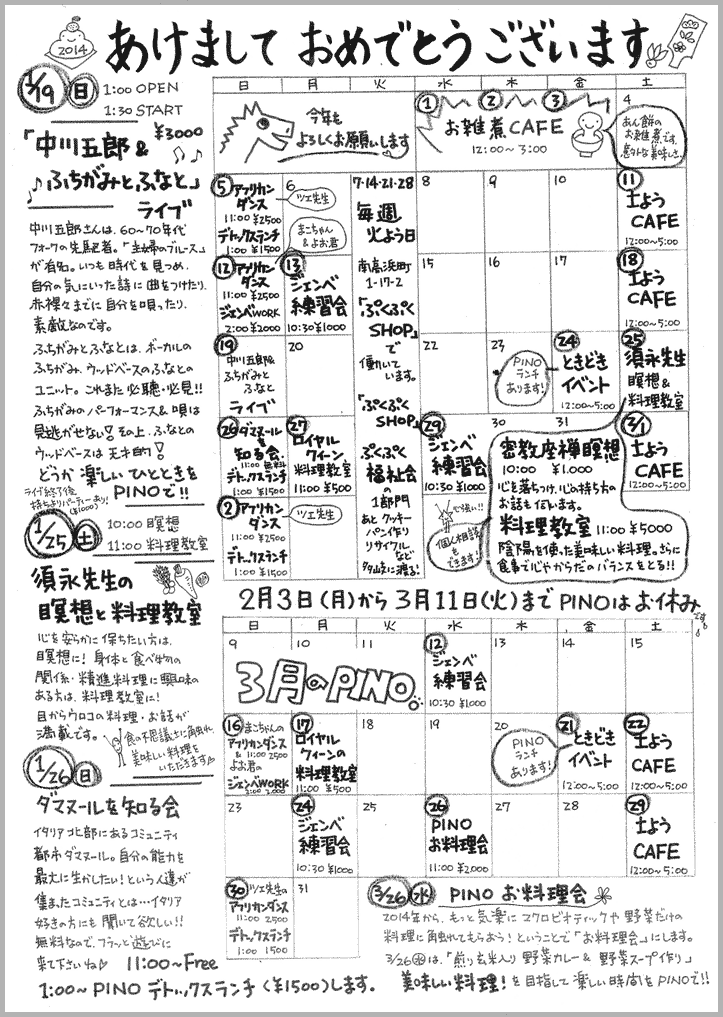 2014
あけまして おめでとうございます
1/19 日
1:00 OPEN
1:30 START
¥3000
「中川五郎&
ふちがみとふなと」
ライブ
中川五郎さんは、60〜70年代
フォークの先駆者。「主婦のブルース」
が有名。いつも時代を見つめ、
自分の気にいった詩に曲をつけたり、
赤裸々までに自分を唄ったり、
素敵なのです。
ふちがみとふなとは、ボーカルの
ふちがみ、ウッドベースのふなとの
ユニット。これまた必聴・必見!!
ふちがみのパーフォーマンス&唄は
見逃がせない!その上、ふなとの
ウッドベースは天才的!
どうか楽しいひとときを
PINOで!!
ライブ終了後
持ちよりパーティーあり!
(¥1000)
1/25 土
10:00 瞑想
11:00 料理教室
須永先生の
瞑想と料理教室
心を安らかに保ちたい方は、
瞑想に!身体と食べ物の
関係・精進料理に興味の
ある方は、料理教室に!
目からウロコの料理・お話が
満載です。
食の不思議さに触れ、
美味しい料理を
いただきます
1/26 日
ダマヌールを知る会
イタリア北部にあるコミュニティ
都市ダマヌール。自分の能力を
最大に生かしたい!という人達が
集まったコミュニティとは…イタリア
好きの方にも聞いて欲しい!!
無料なので、フラっと遊びに
来て下さいね♡ 11:00〜Free
1:00〜PINO デトックスランチ(¥1500)します。
日 月 火 水 木 金 土
今年も
よろしくお願いします
1 2 3
お雑煮CAFE
12:00〜3:00
4
あん餅の
お雑煮です。
意外な美味しさ。
5 アフリカン
ダンス
11:00 ¥2500
デトックスランチ
1:00 ¥1500
6
ツエ先生
まこちゃん
&よお君
7・14・21・28
毎週
火よう日
南高浜町
1-17-2
「ぷくぷく
SHOP」
で
働いて
います。
「ぷくぷく
SHOP」
ぷくぷく
福祉会
の
1部門
あと クッキー
パン作り
リサイクル
など
多岐に渡る!
8
9
10
11 土よう
CAFE
12:00〜5:00
12 アフリカン
ダンス
11:00 ¥2500
ジェンベWORK
2:00 ¥2000
13 ジェンベ
練習会
10:30 ¥1000
15
16
17
18 土よう
CAFE
12:00〜5:00
19
中川五郎&
ふちがみと
ふなと
ライブ
20
22
23
PINO
ランチ
あります!
24 ときどき
イベント
12:00〜5:00
25 須永先生
瞑想&
料理教室
26 ダマヌール
を
知る会
11:00 無料
デトックスランチ
1:00 ¥1500
27 ロイヤル
クイーン
料理教室
11:00 ¥500
29 ジェンベ
練習会
10:30 ¥1000
30
31
密教座禅瞑想
10:00 ¥1.000
心を落ちつけ、心の持ち方の
お話も伺います。
料理教室 11:00 ¥5000
陰陽を使った美味しい料理。さらに
食事で心やからだのバランスをとる!!
3/1 土よう
CAFE
12:00〜5:00
2 アフリカン
ダンス
11:00 ¥2500
デトックスランチ
1:00 ¥1500
ツエ先生
心強い!!
個人相談も
できます!
2月3日(月)から3月11日(火)まで PINOはお休み
です
日 月 火 水 木 金 土
9
10
11
3月のPINO
12 ジェンベ
練習会
10:30 ¥1000
13
14
15
16 まこちゃんの
アフリカンダンス
11:00 2500
よお君の
ジェンベWORK
2:00 2,000
17 ロイヤル
クィーンの
料理教室
11:00 ¥500
18
19
20
PINO
ランチ
あります!
21 ときどき
イベント
12:00〜5:00
22 土よう
CAFE
12:00〜5:00
23
24 ジェンベ
練習会
10:30 ¥1000
25
26 PINO
お料理会
11:00 ¥2,000
27
28
29 土よう
CAFE
12:00〜5:00
30 ツエ先生の
アフリカンダンス
11:00 2500
デトックスランチ
1:00 1500
31
3/26 水 PINO お料理会
2014年から、もっと気楽にマクロビオティックや野菜だけの
料理に触れてもらおう!ということで「お料理会」にします。
3/26㊌は、「煎り玄米入り野菜カレー & 野菜スープ作り」
美味しい料理!を目指して楽しい時間をPINOで!!